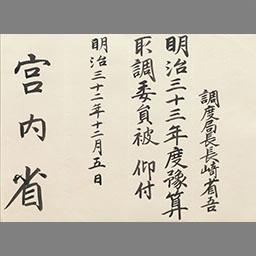 調度局長長崎省吾
明治三十三年度豫算
取調委員被 仰付
明治三十二年十二月五日
宮内省